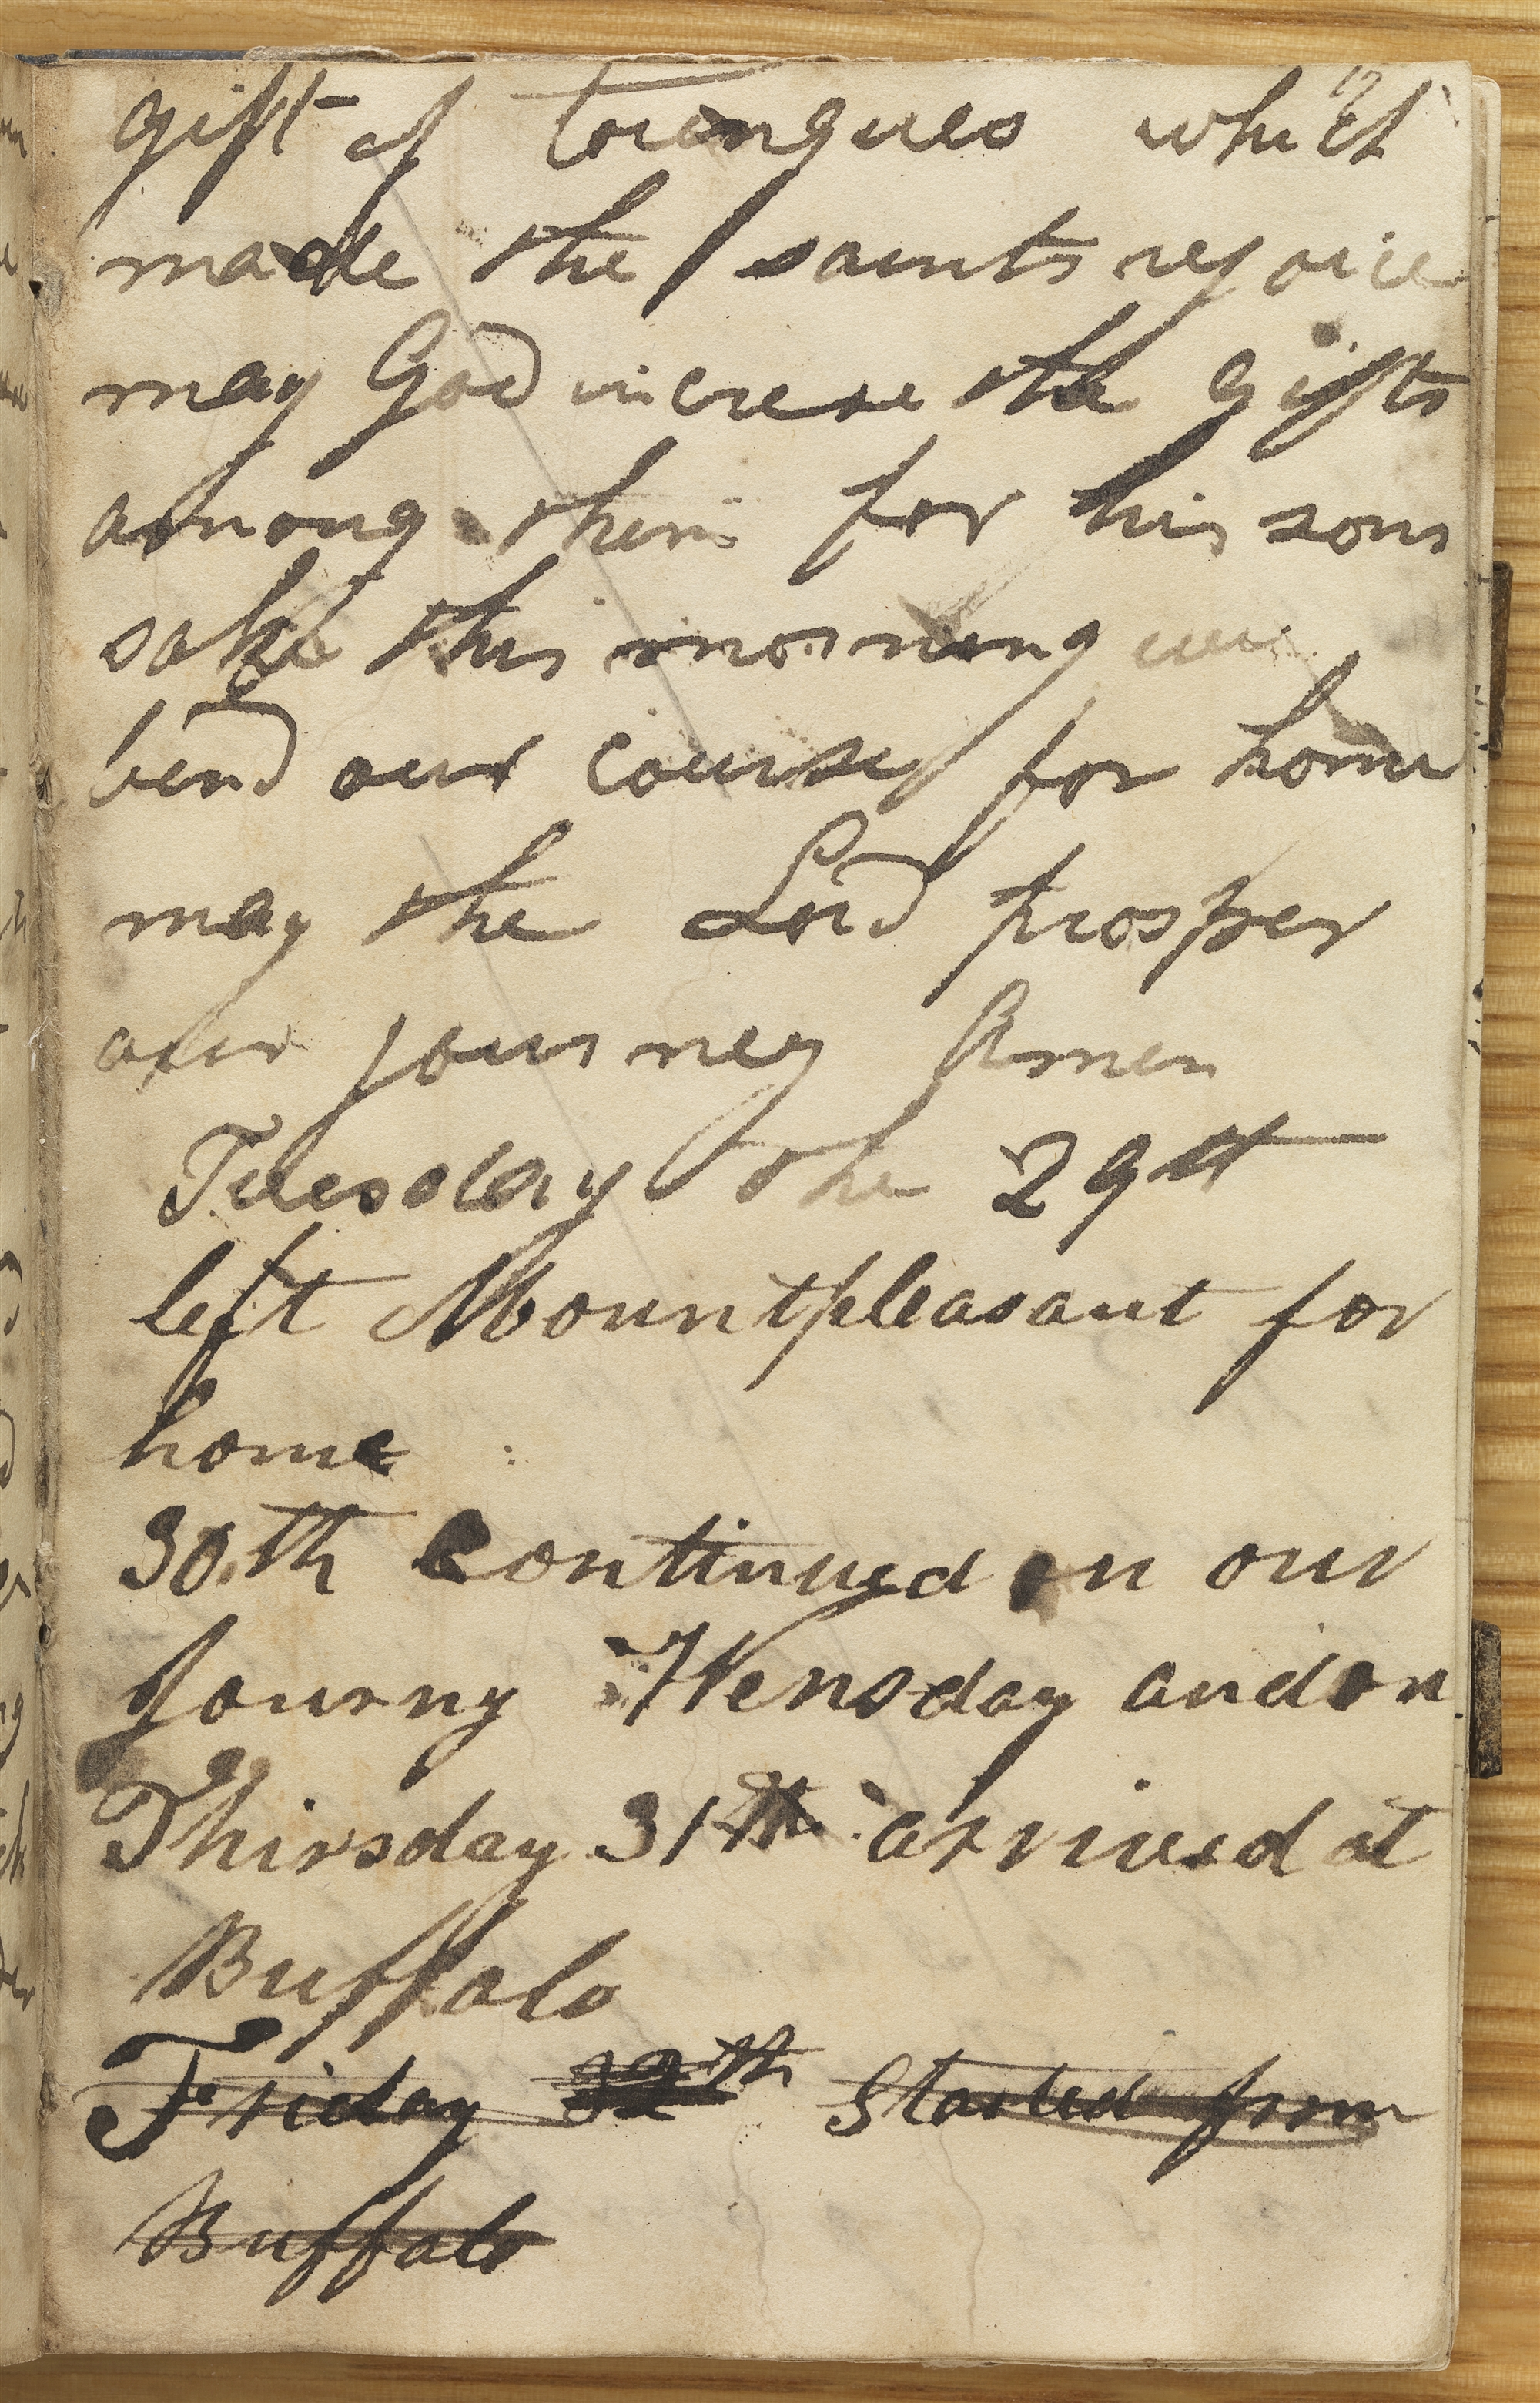 gift of toungues which
made the saints rejoice
may God increse the gifts
among them for his sons
sake this morning we
bend our course for home
may the Lord prosper
our journey Amen
Tuesday the 29th
left Mountpleasant for
home
30th continued on our
Journy Wensday and on
Thirsday 31th arrived at
Buffalo
Friday 32th Started from
Buffalo